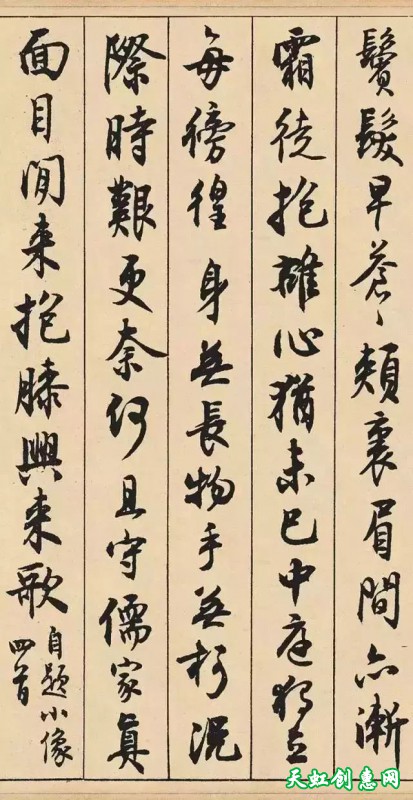 鬢髮早蒼〻頰裏眉間亦漸
霜徒抱雄心猶未已中庭獨立
每徬徨身無長物手無柯況
際時艱更奈何且守儒家眞
面目閒来抱膝興来歌
自題小像
四首
天虹创意网